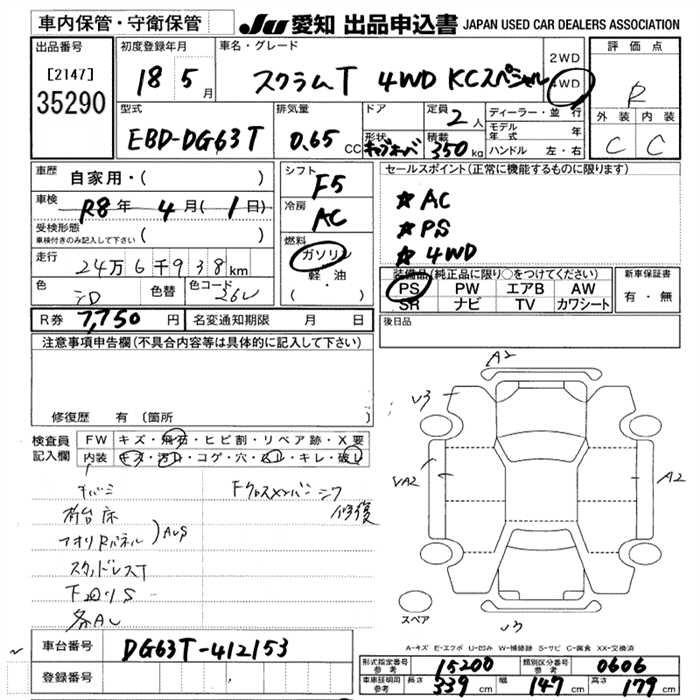 車内保管・守衛保管
JU 愛知 出品申込書 JAPAN USED CAR DEALERS ASSOCIATION
出品番号
[2147]
35290
初度登録年月
18 5月
車名・グレード
スクラムT 4WD KCスペシャル
2WD
4WD
評価点
R
外装 内装
C C
型式
EBD-DG63T
排気量
0.65 CC
ドア
形状
キャブオーバ
定員 2人
積載 350kg
ディーラー・並行
モデル年式 年
ハンドル 左・右
車歴
自家用・( )
車検
R8年 4月(1日)
受検形態
車検付きのみ記入して下さい ( )
走行
24万6千938km
色
シロ
色替
色コード
26U
シフト
F5
冷房
AC
燃料
ガソリン
軽油
( ・ )
セールスポイント(正常に機能するものに限ります)
☆ AC
☆ PS
☆ 4WD
装備品(純正品に限り○をつけてください)
PS PW エアB AW
SR ナビ TV カワシート
新車保証書
有・無
R券 7,750円
名変通知期限 月 日
後日品
注意事項申告欄(不具合内容等は具体的に記入して下さい)
修復歴 有 〔箇所 〕
検査員記入欄
FW キズ・飛石・ヒビ割・リペア跡・X要
内装 キズ・汚れ・コゲ・穴・ハル・キレ・破レ
チバミ
荷台床
アオリRパネル
AUS
スタッドレスT
下回りS
各AU
Fクロスメンバーシワ
修復
A2
V3
VA2
A2
V3
スペア
A-キズ E-エクボ U-凹み W-補修跡 S-サビ C-腐食 XX-交換済
車台番号 DG63T-412153
登録番号
形式指定番号 参考 15200
類別区分番号 参考 0606
車車証明用 参考 長さ 339cm 幅 147cm 高さ 179cm